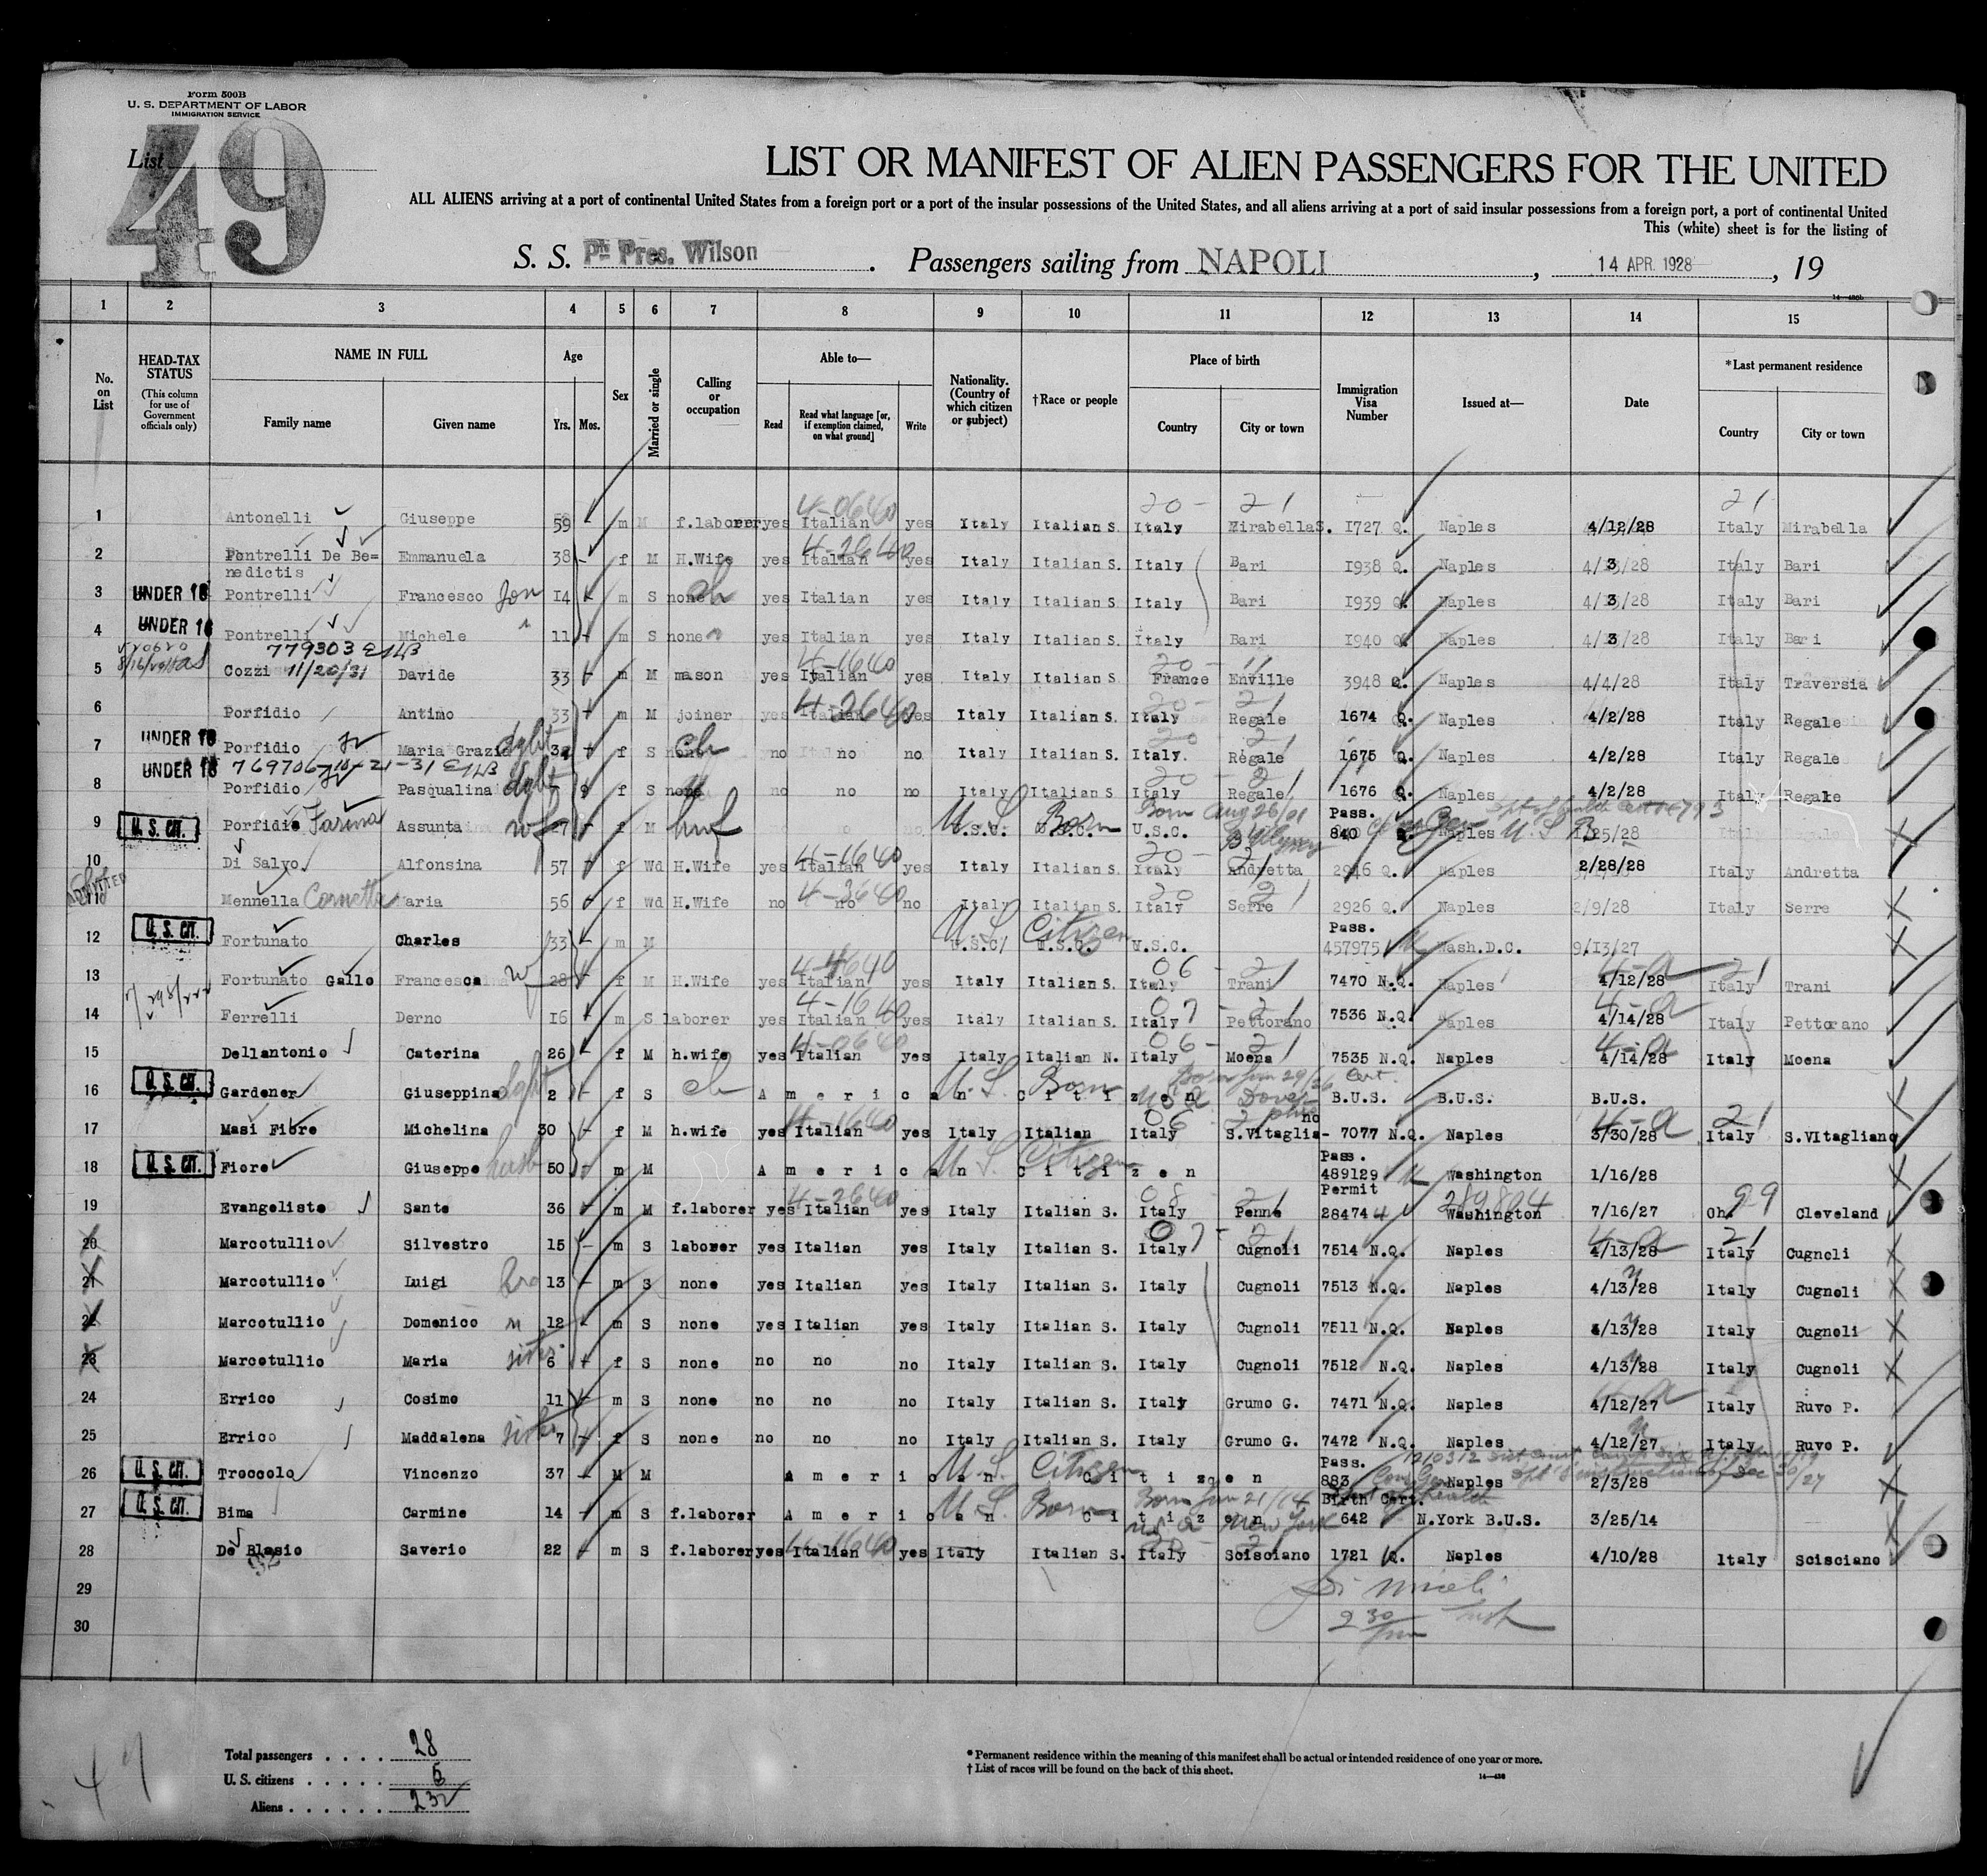 Form 500B
U. S. DEPARTMENT OF LABOR
IMMIGRATION SERVICE
List
49
LIST OR MANIFEST OF ALIEN PASSENGERS FOR THE UNITED
ALL ALIENS arriving at a port of continental United States from a foreign port or a port of the insular possessions of the United States, and all aliens arriving at a port of said insular possessions from a foreign port, a port of continental United
This (white) sheet is for the listing of
S. S. Pt Pres. Wilson . Passengers sailing from NAPOLI , 14 APR. 1928 , 19
1 2 3 4 5 6 7 8 9 10 11 12 13 14 15
No. on List
HEAD-TAX STATUS (This column for use of Government officials only)
NAME IN FULL
Family name Given name
Age
Yrs. Mos.
Sex
Married or single
Calling or occupation
Able to—
Read Read what language [or, if exemption claimed, on what ground] Write
Nationality. (Country of which citizen or subject)
†Race or people
Place of birth
Country City or town
Immigration Visa Number
Issued at—
Date
*Last permanent residence
Country City or town
4-0640 20 - 21 21
1 Antonelli Giuseppe 59 m M f.laborer yes Italian yes Italy Italian S. Italy MirabellaS. 1727 Q. Naples 4/12/28 Italy Mirabella
4-2640
2 Pontrelli De Be= Emmanuela 38 f M H.Wife yes Italian yes Italy Italian S. Italy Bari 1938 Q. Naples 4/3/28 Italy Bari
nedictis
3 UNDER 16 Pontrelli Francesco Son 14 m S none ch yes Italian yes Italy Italian S. Italy Bari 1939 Q. Naples 4/3/28 Italy Bari
4 UNDER 16 Pontrelli Michele 11 m S none yes Italian yes Italy Italian S. Italy Bari 1940 Q. Naples 4/3/28 Italy Bari
779303 11/20/31
4-1640 20 -
5 Cozzi Davide 33 m M mason yes Italian yes Italy Italian S. France Enville 3948 Q. Naples 4/4/28 Italy Traversia
4-2640 20 - 21
6 Porfidio Antimo 33 m M joiner yes Italian yes Italy Italian S. Italy Regale 1674 Q. Naples 4/2/28 Italy Regale
7 UNDER 16 Porfidio Maria Grazia dght 3 f S none ch no no no Italy Italian S. Italy. Regale 1675 Q. Naples 4/2/28 Italy Regale
769706 10-21-31
8 UNDER 16 Porfidio Pasqualina dght 9 f S none no no no Italy Italian S. Italy Regale 1676 Q. Naples 4/2/28 Italy Regale
Born Aug 26/01 Pass.
9 U. S. CIT. Porfidio Farina Assunta wf 27 f M hwf U.S. Born U.S.C. 840 Naples 1/25/28
4-1640 20 - 21
10 Di Salvo Alfonsina 57 f Wd H.Wife yes Italian yes Italy Italian S. Italy Andretta 2946 Q. Naples 2/28/28 Italy Andretta
ADMITTED
4-3640 20 2
11 Mennella Cornetta Maria 56 f Wd H.Wife no no no Italy Italian S. Italy Serre 2926 Q. Naples 2/9/28 Italy Serre
U.S. Citizen Pass.
12 U. S. CIT. Fortunato Charles 33 m M U.S.C/ U.S.C. U.S.C. 457975 Wash.D.C. 9/13/27
4-4640 06 - 21 4-a 21
13 Fortunato Gallo Francesca w 28 f M H.Wife yes Italian yes Italy Italian S. Italy Trani 7470 N.Q. Naples 4/12/28 Italy Trani
4-1640 07 - 21 4-a
14 Ferrelli Derno 16 m S laborer yes Italian yes Italy Italian S. Italy Pettorano 7536 N.Q. Naples 4/14/28 Italy Pettorano
4-0640 06 - 21 4-a
15 Dellantonio Caterina 26 f M h.wife yes Italian yes Italy Italian N. Italy Moena 7535 N.Q. Naples 4/14/28 Italy Moena
U.S. Born Born Jan 29/26 Cert.
16 U. S. CIT. Gardener Giuseppina dght 2 f S ch American Citizen B.U.S. B.U.S. B.U.S.
4-1640 06 no 4-a 21
17 Masi Fiore Michelina 30 f M h.wife yes Italian yes Italy Italian Italy S.Vitaglia- 7077 N.Q. Naples 3/30/28 Italy S.VItagliano
U.S. Citizen Pass.
18 U. S. CIT. Fiore Giuseppe husb 50 m M American Citizen 489129 Washington 1/16/28
4-2640 08 - 21 Permit 289804 99
19 Evangelisto Sante 36 m M f.laborer yes Italian yes Italy Italian S. Italy Penne 28474 Washington 7/16/27 Oh. Cleveland
07 - 21 4-a 21
20 Marcotullio Silvestro 15 m S laborer yes Italian yes Italy Italian S. Italy Cugnoli 7514 N.Q. Naples 4/13/28 Italy Cugnoli
21 Marcotullio Luigi Bro 13 m S none yes Italian yes Italy Italian S. Italy Cugnoli 7513 N.Q. Naples 4/13/28 Italy Cugnoli
22 Marcotullio Domenico 12 m S none yes Italian yes Italy Italian S. Italy Cugnoli 7511 N.Q. Naples 4/13/28 Italy Cugnoli
23 Marcotullio Maria sister 6 f S none no no no Italy Italian S. Italy Cugnoli 7512 N.Q. Naples 4/13/28 Italy Cugnoli
24 Errico Cosimo 11 m S none no no no Italy Italian S. Italy Grumo G. 7471 N.Q. Naples 4/12/27 Italy Ruvo P.
25 Errico Maddalena sister 7 f S none no no no Italy Italian S. Italy Grumo G. 7472 N.Q. Naples 4/12/27 Italy Ruvo P.
U.S. Citizen Pass.
26 U. S. CIT. Troccolo Vincenzo 37 M M American Citizen 883 Naples 2/3/28
U.S. Born Born Jan 21/14 Birth Cert.
27 U. S. CIT. Bima Carmine 14 m S f.laborer American Citizen New York 642 N.York B.U.S. 3/25/14
4-1640
28 De Blasio Saverio 22 m S f.laborer yes Italian yes Italy Italian S. Italy Scisciano 1721 Q. Naples 4/10/28 Italy Scisciano
29
30
2 30
Total passengers . . . . 28
U. S. citizens . . . . . 5
Aliens . . . . . .
47
* Permanent residence within the meaning of this manifest shall be actual or intended residence of one year or more.
† List of races will be found on the back of this sheet.